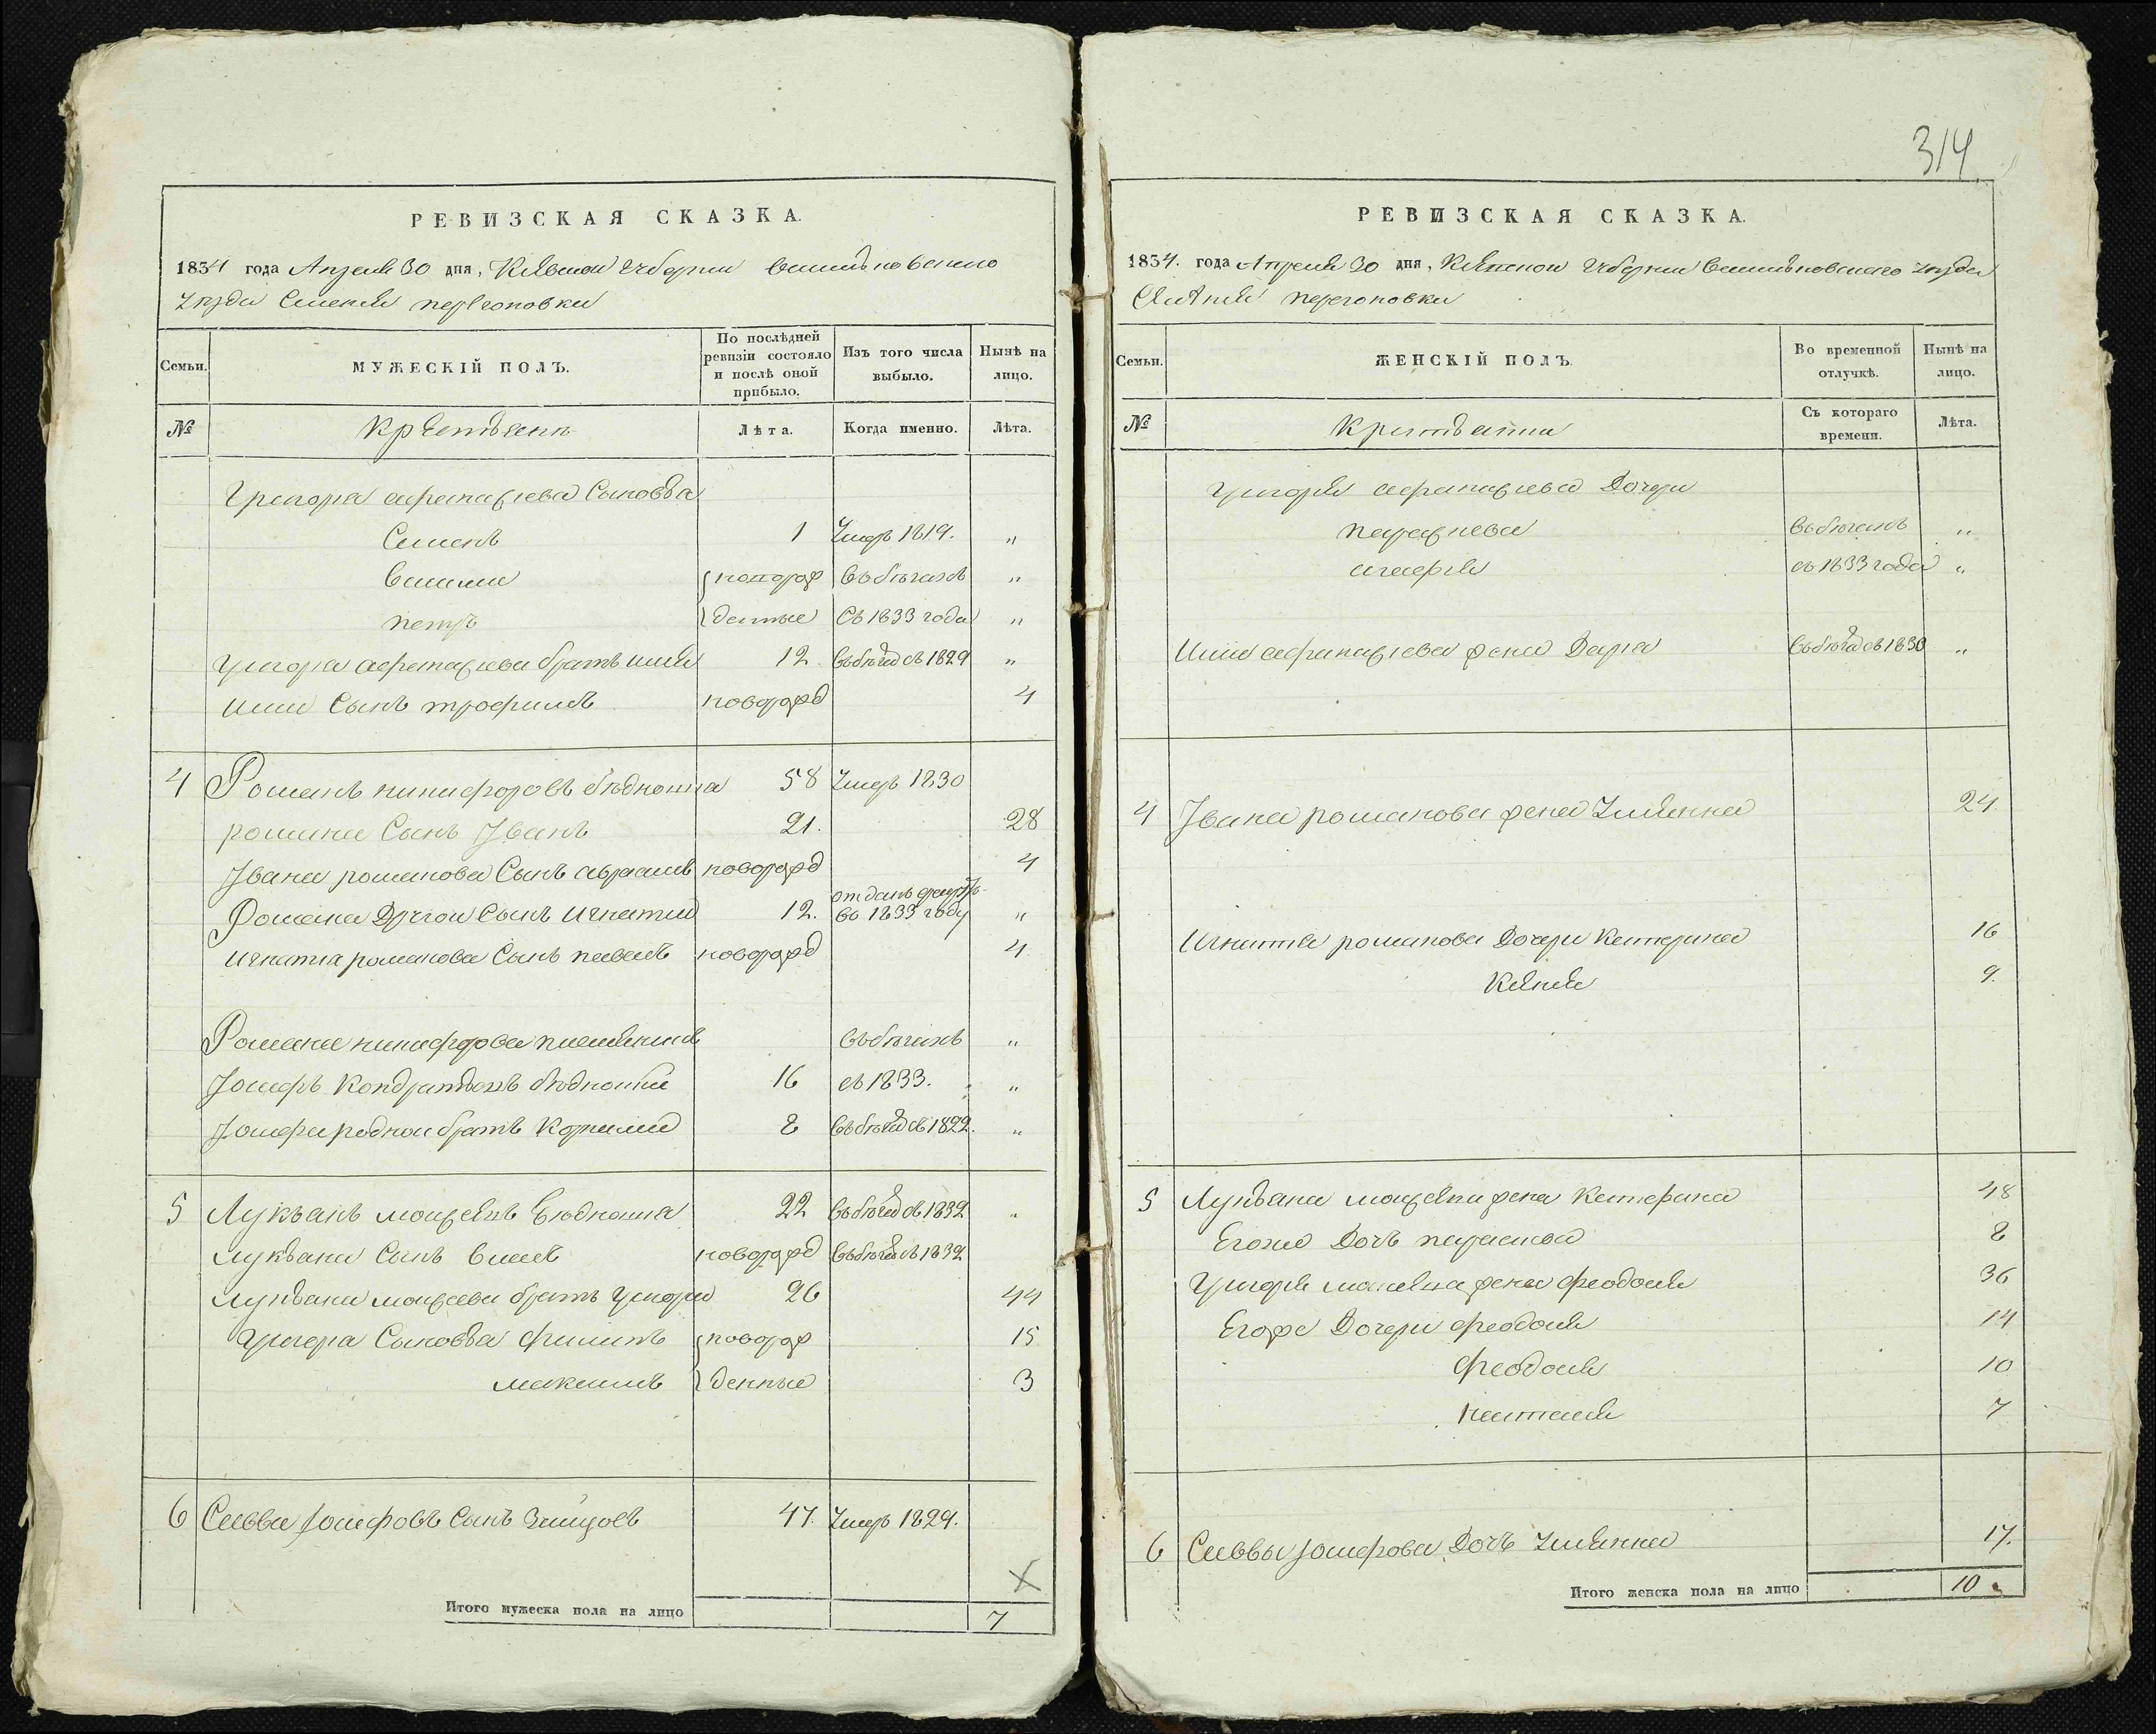 314.
РЕВИЗСКАЯ СКАЗКА.
1834 года Апреля 30 дня, Киевской Губернии Васильковского
уезда Селения перегоновки
Семьи. МУЖЕСКІЙ ПОЛЪ. По послѣдней ревизіи состояло и послѣ оной прибыло. Изъ того числа выбыло. Нынѣ на лицо.
№ Крестьянъ Лѣта. Когда именно. Лѣта.
Григория афанасиева Сыновья
Семенъ 1 Умеръ 1819. "
Васили { новорож въ бегахъ "
петръ { денные Съ 1833 года "
Григория афанасиева братъ илия 12. въ бегах съ 1829 "
илии Сынъ трофимъ новорожд 4
4 Романъ никифоровъ бедношиа 58 Умеръ 1830
романа Сынъ Іванъ 21. 28
Јвана романова Сынъ авраамъ новорожд 4
Романа Другои Сынъ игнатии 12. отданъ рекруты во 1833 году "
игнатиа романова Сынъ павелъ новорожд 4
Романа никифорова племянникъ въ бегахъ "
Јосифъ Кондратьевъ 16 съ 1833. "
Јосифа роднои братъ Корнилии 8 въ бегах съ 1822. "
5 Лукьанъ моисеевъ бедношиа 22 въ бегах съ 1832 "
лукьана Сынъ новорожд въ бегах съ 1832
лукьана моисеева братъ григори 26 44
Григора Сыновьа филипъ { новорож 15
максимъ { денные 3
6 Савва Јосифовъ Сынъ Заицовъ 47. Умеръ 1829.
Х
Итого мужеска пола на лицо 7
РЕВИЗСКАЯ СКАЗКА.
1834. года Апреля 30 дня, Киевской Губернии Васильковского уезда
Селения перегоновки
Семьи. ЖЕНСКІЙ ПОЛЪ. Во временной отлучкѣ. Нынѣ на лицо.
№ Крестьянки Съ котораго времени. Лѣта.
Григория афанасиева Дочери
парасцева въ бегахъ "
агафия съ 1833 года "
илии афанасиева жена Дарья въ бегах съ 1830 "
4 Јвана романова жена Улианна 24
Игнатья романова Дочери Катерина 16
Ксения 9.
5 Лукьана жена Катерина 48
Егоже Дочь параскева 8
Григория жена феодосия 36
Егоже Дочери феодосия 14
феодосия 10
наталия 7
6 Саввы Јосифова Дочь Улианна 17.
Итого женска пола на лицо 10